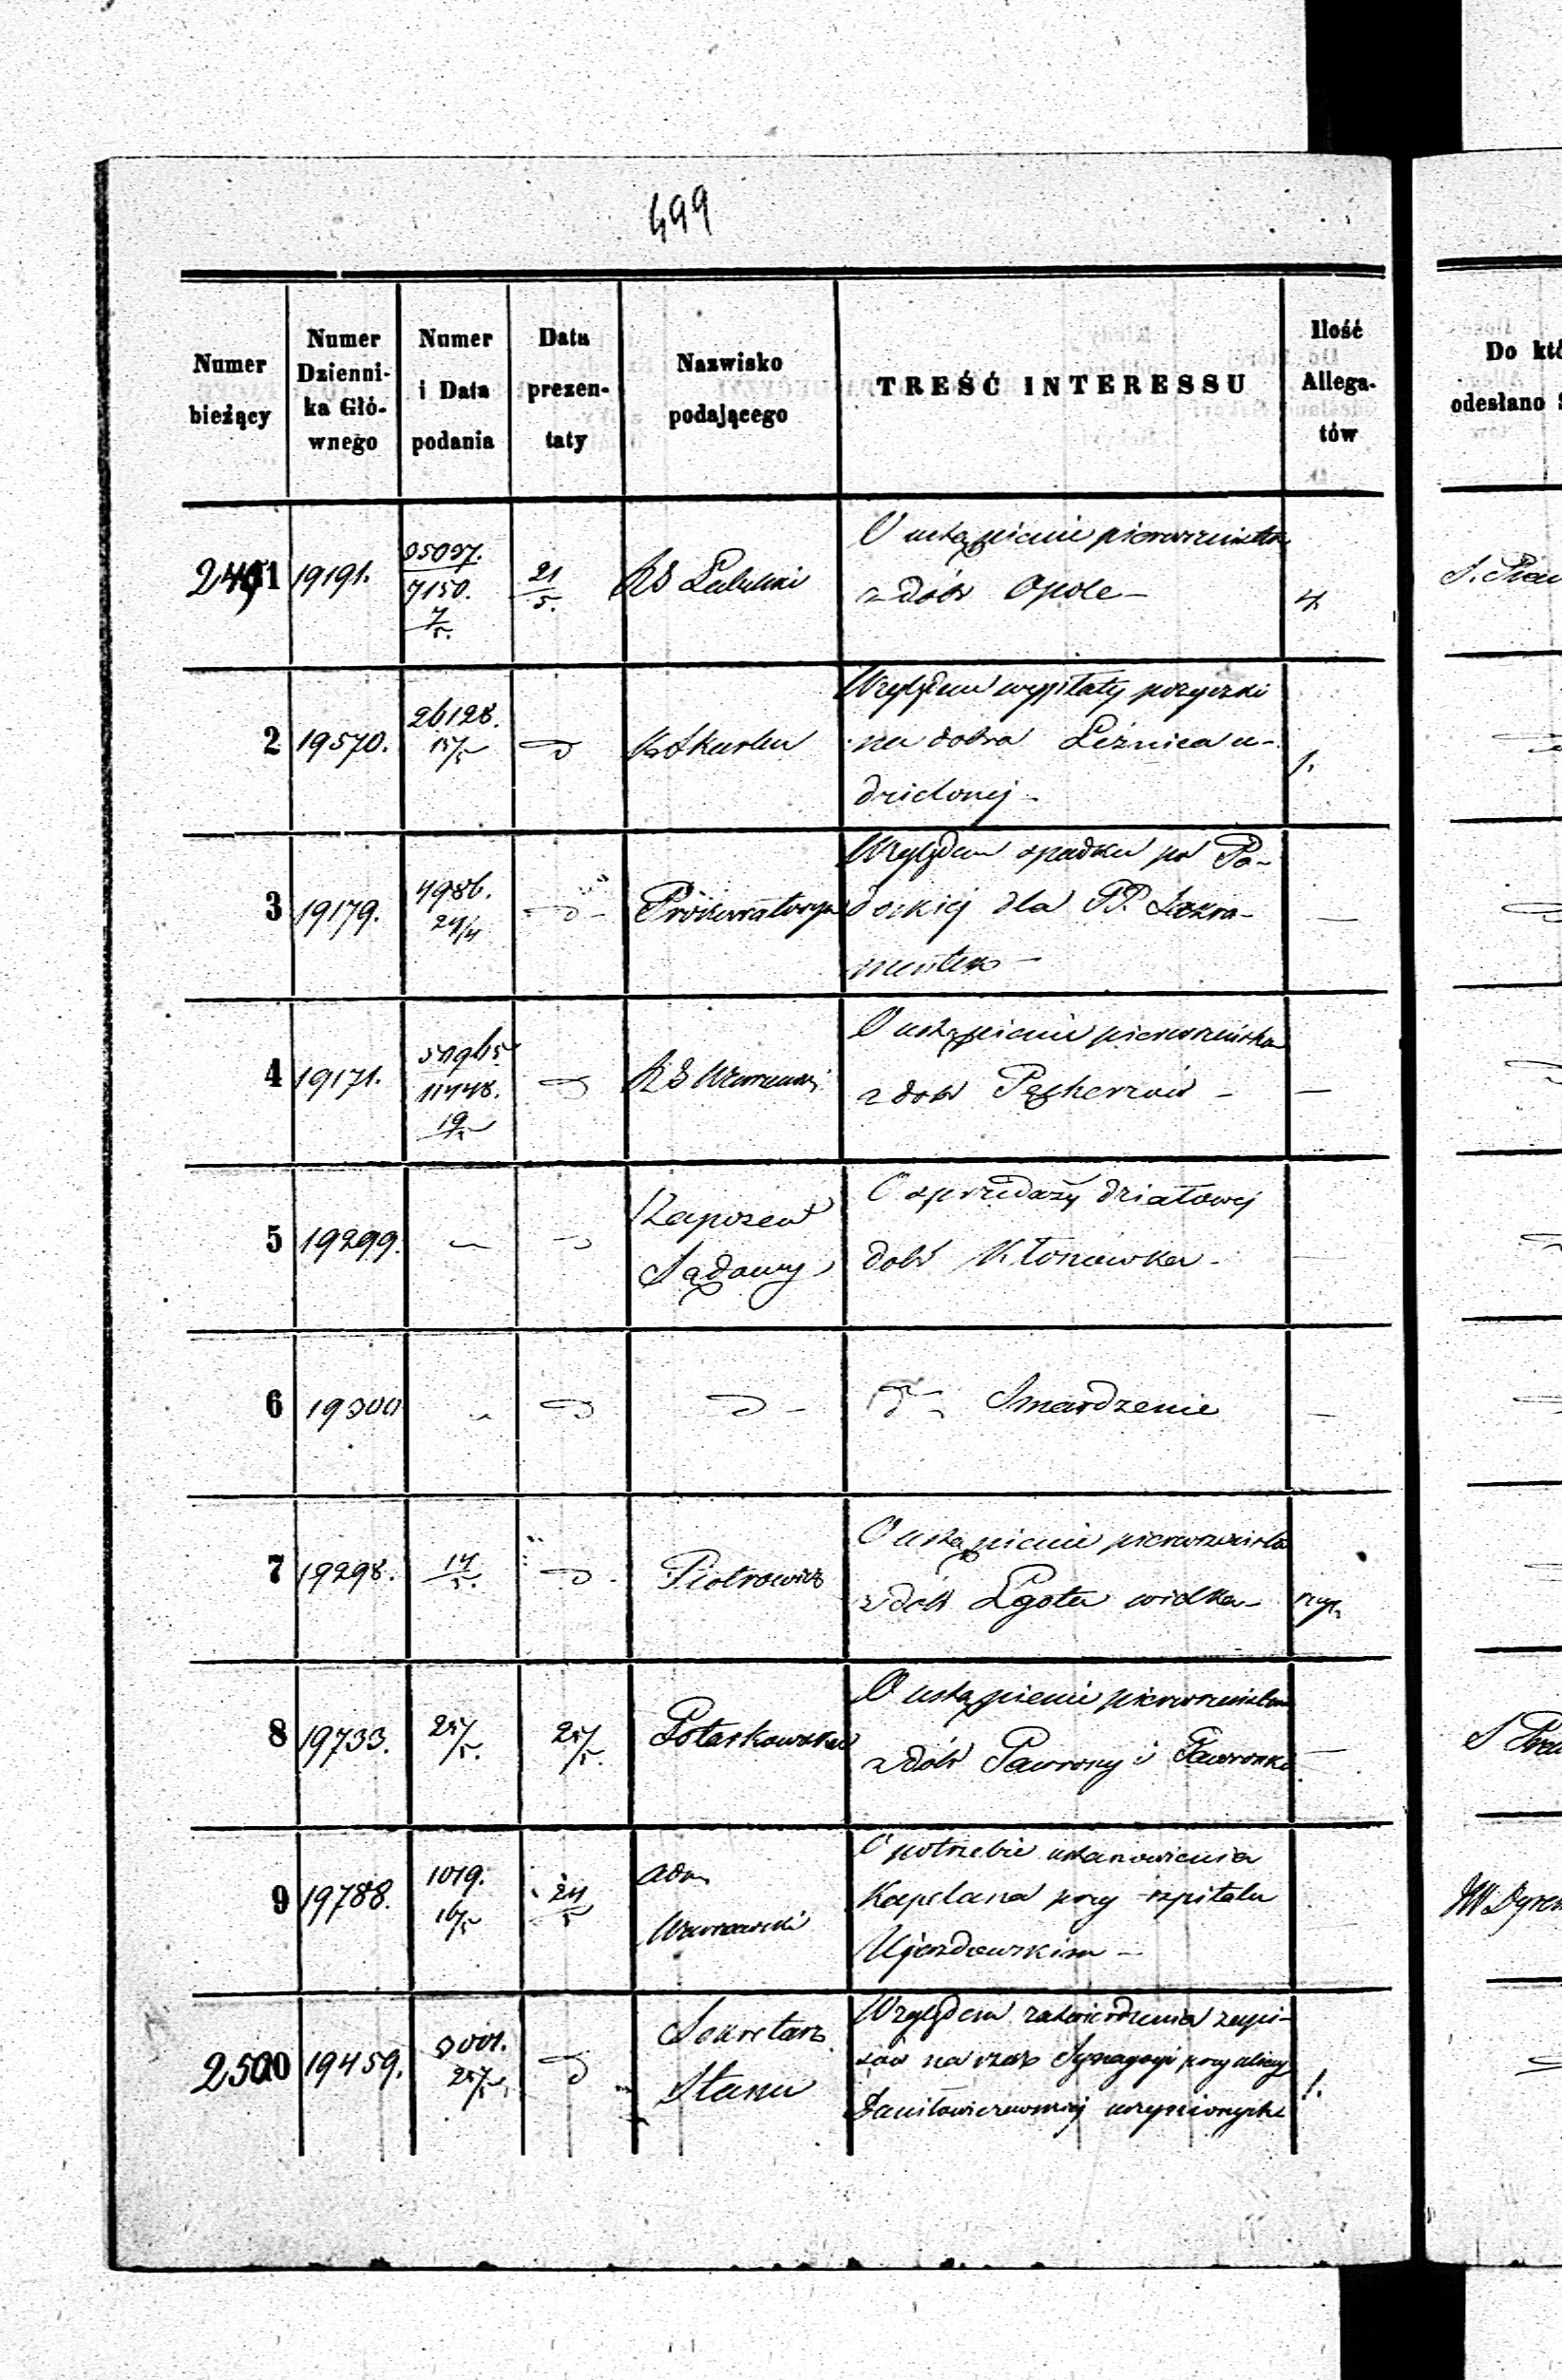 499
Numer bieżący
Numer Dzienni-ka Głó-wnego
Numer i Data podania
Data prezen-taty
Nazwisko podającego
TREŚĆ INTERESSU
Ilość Allega-tów
Do któ
odesłano
2491 19191. 7150. 7/5. 21/5. RG Lubelski
O ustąpienie pierwszeństwa
z dóbr Opole – 4
2 19570. 26128. 15/5
Względem wypłaty pożyczki
na dobra Leżnica u-
dzielonej – 1.
3 19179. 4986. 24/4 Prokuratorya
Względem spadku po Po-
dockiej dla PP. Sakra-
mentek –
4 19171. 11448. 19/5 RG Warszaws
O ustąpienie pierwszeństwa
z dóbr Pęcherzów – –
5 19299. – Zapozew
Sądowy
O sprzedaży działowej
dóbr Kłonówka –
6 19300 – Smardzenie –
7 19298. 17/5. Piotrowicz
O ustąpienie pierwszeństwa
z dóbr Lgota wielka –
8 19733. 25/5. 25/5.
O ustąpienie pierwszeństwa
z dóbr i –
9 19788. 1019. 16/5 24/5 Adm
Warszawski
O potrzebie ustanowienia
Kapelana przy szpitalu
Ujazdowskim –
2500 19459. 25/5 Sekretarz
Stanu
Względem zatwierdzenia zapi-
sów na rzecz Synagogi przy ulicy
Daniłowiczowskiej uczynionych 1.